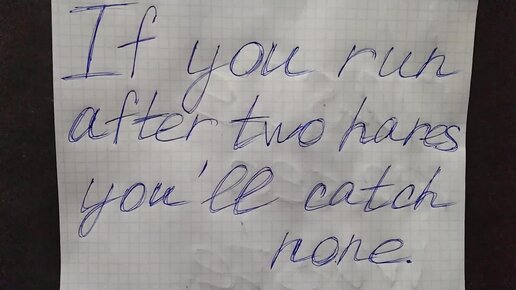 If you run
after two hares
you'll catch
none.